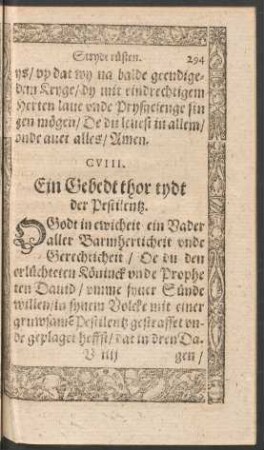 Stryde rüsten. 294
ys/ vp dat wy na balde geendige-
dem Kryge/ dy mit eindrechtigem
Herten laue vnde Prysgesenge sin
gen mögen/ De du leuest in allem/
vnde auer alles/ Amen.
CVIII.
Ein Gebedt thor tydt
der Pestilentz.
O Godt in ewicheit ein Vader
aller Barmherticheit vnde
Gerechticheit / De du den
erlüchteten Köninck vnde Prophe
ten Dauid / vmme syner Sünde
willen/ in synem Volcke mit einer
gruwsamē Pestilentz gestraffet vn-
de geplaget heffst/ dat in dren Da-
V iiij gen /